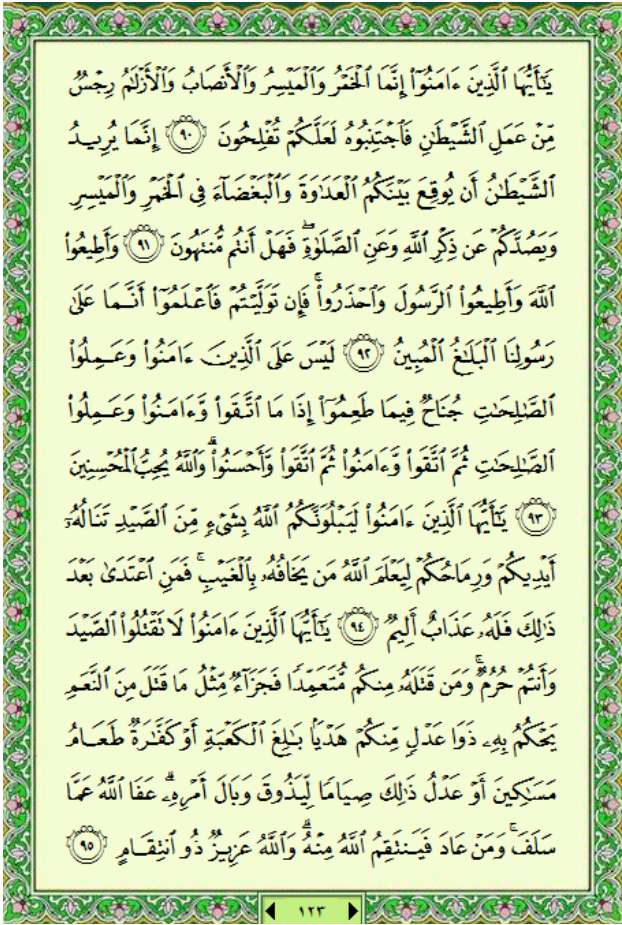 يَٰٓأَيُّهَا ٱلَّذِينَ ءَامَنُوٓا۟ إِنَّمَا ٱلْخَمْرُ وَٱلْمَيْسِرُ وَٱلْأَنصَابُ وَٱلْأَزْلَٰمُ رِجْسٌ
مِّنْ عَمَلِ ٱلشَّيْطَٰنِ فَٱجْتَنِبُوهُ لَعَلَّكُمْ تُفْلِحُونَ ٩٠ إِنَّمَا يُرِيدُ
ٱلشَّيْطَٰنُ أَن يُوقِعَ بَيْنَكُمُ ٱلْعَدَٰوَةَ وَٱلْبَغْضَآءَ فِى ٱلْخَمْرِ وَٱلْمَيْسِرِ
وَيَصُدَّكُمْ عَن ذِكْرِ ٱللَّهِ وَعَنِ ٱلصَّلَوٰةِ ۖ فَهَلْ أَنتُم مُّنتَهُونَ ٩١ وَأَطِيعُوا۟
ٱللَّهَ وَأَطِيعُوا۟ ٱلرَّسُولَ وَٱحْذَرُوا۟ ۚ فَإِن تَوَلَّيْتُمْ فَٱعْلَمُوٓا۟ أَنَّمَا عَلَىٰ
رَسُولِنَا ٱلْبَلَٰغُ ٱلْمُبِينُ ٩٢ لَيْسَ عَلَى ٱلَّذِينَ ءَامَنُوا۟ وَعَمِلُوا۟
ٱلصَّٰلِحَٰتِ جُنَاحٌ فِيمَا طَعِمُوٓا۟ إِذَا مَا ٱتَّقَوا۟ وَّءَامَنُوا۟ وَعَمِلُوا۟
ٱلصَّٰلِحَٰتِ ثُمَّ ٱتَّقَوا۟ وَّءَامَنُوا۟ ثُمَّ ٱتَّقَوا۟ وَّأَحْسَنُوا۟ ۗ وَٱللَّهُ يُحِبُّ ٱلْمُحْسِنِينَ
٩٣ يَٰٓأَيُّهَا ٱلَّذِينَ ءَامَنُوا۟ لَيَبْلُوَنَّكُمُ ٱللَّهُ بِشَىْءٍ مِّنَ ٱلصَّيْدِ تَنَالُهُۥٓ
أَيْدِيكُمْ وَرِمَاحُكُمْ لِيَعْلَمَ ٱللَّهُ مَن يَخَافُهُۥ بِٱلْغَيْبِ ۚ فَمَنِ ٱعْتَدَىٰ بَعْدَ
ذَٰلِكَ فَلَهُۥ عَذَابٌ أَلِيمٌ ٩٤ يَٰٓأَيُّهَا ٱلَّذِينَ ءَامَنُوا۟ لَا تَقْتُلُوا۟ ٱلصَّيْدَ
وَأَنتُمْ حُرُمٌ ۚ وَمَن قَتَلَهُۥ مِنكُم مُّتَعَمِّدًا فَجَزَآءٌ مِّثْلُ مَا قَتَلَ مِنَ ٱلنَّعَمِ
يَحْكُمُ بِهِۦ ذَوَا عَدْلٍ مِّنكُمْ هَدْيًۢا بَٰلِغَ ٱلْكَعْبَةِ أَوْ كَفَّٰرَةٌ طَعَامُ
مَسَٰكِينَ أَوْ عَدْلُ ذَٰلِكَ صِيَامًا لِّيَذُوقَ وَبَالَ أَمْرِهِۦ ۗ عَفَا ٱللَّهُ عَمَّا
سَلَفَ ۚ وَمَنْ عَادَ فَيَنتَقِمُ ٱللَّهُ مِنْهُ ۗ وَٱللَّهُ عَزِيزٌ ذُو ٱنتِقَامٍ ٩٥
١٢٣